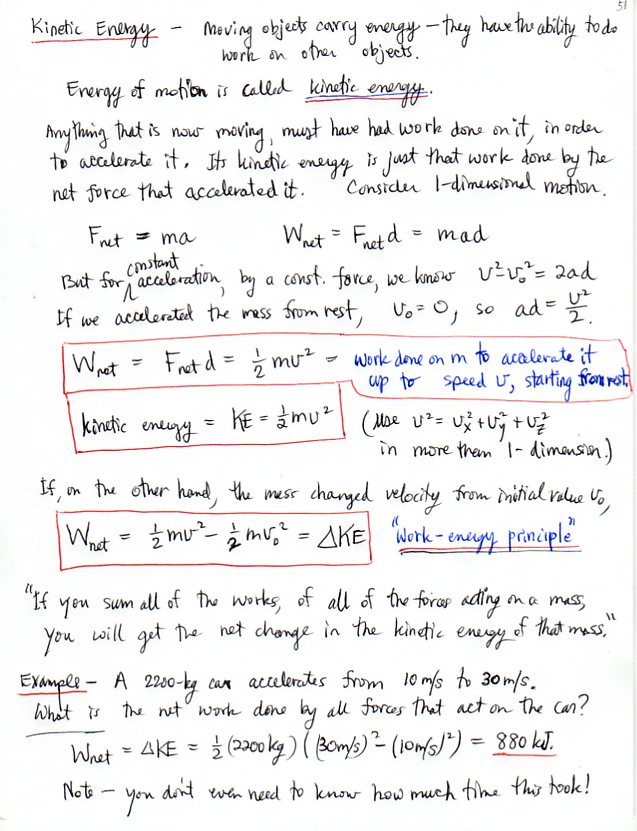 51
Kinetic Energy – Moving objects carry energy – they have the ability to do
work on other objects.
Energy of motion is called kinetic energy.
Anything that is now moving, must have had work done on it, in order
to accelerate it. Its kinetic energy is just that work done by the
net force that accelerated it. Consider 1-dimensional motion.
F_net = ma W_net = F_net d = mad
constant
But for acceleration, by a const. force, we know v² - v₀² = 2ad
If we accelerated the mass from rest, v₀ = 0, so ad = v²/2.
W_net = F_net d = ½ mv² = work done on m to accelerate it
up to speed v, starting from rest.
kinetic energy = KE = ½ mv² (Use v² = v_x² + v_y² + v_z²
in more than 1-dimension.)
If, on the other hand, the mass changed velocity from initial value v₀,
W_net = ½ mv² - ½ mv₀² = ΔKE "Work-energy principle"
"If you sum all of the works, of all of the forces acting on a mass,
you will get the net change in the kinetic energy of that mass."
Example – A 2200-kg car accelerates from 10 m/s to 30 m/s.
What is the net work done by all forces that act on the car?
W_net = ΔKE = ½ (2200 kg) ((30m/s)² - (10m/s)²) = 880 kJ.
Note – you don't even need to know how much time this took!